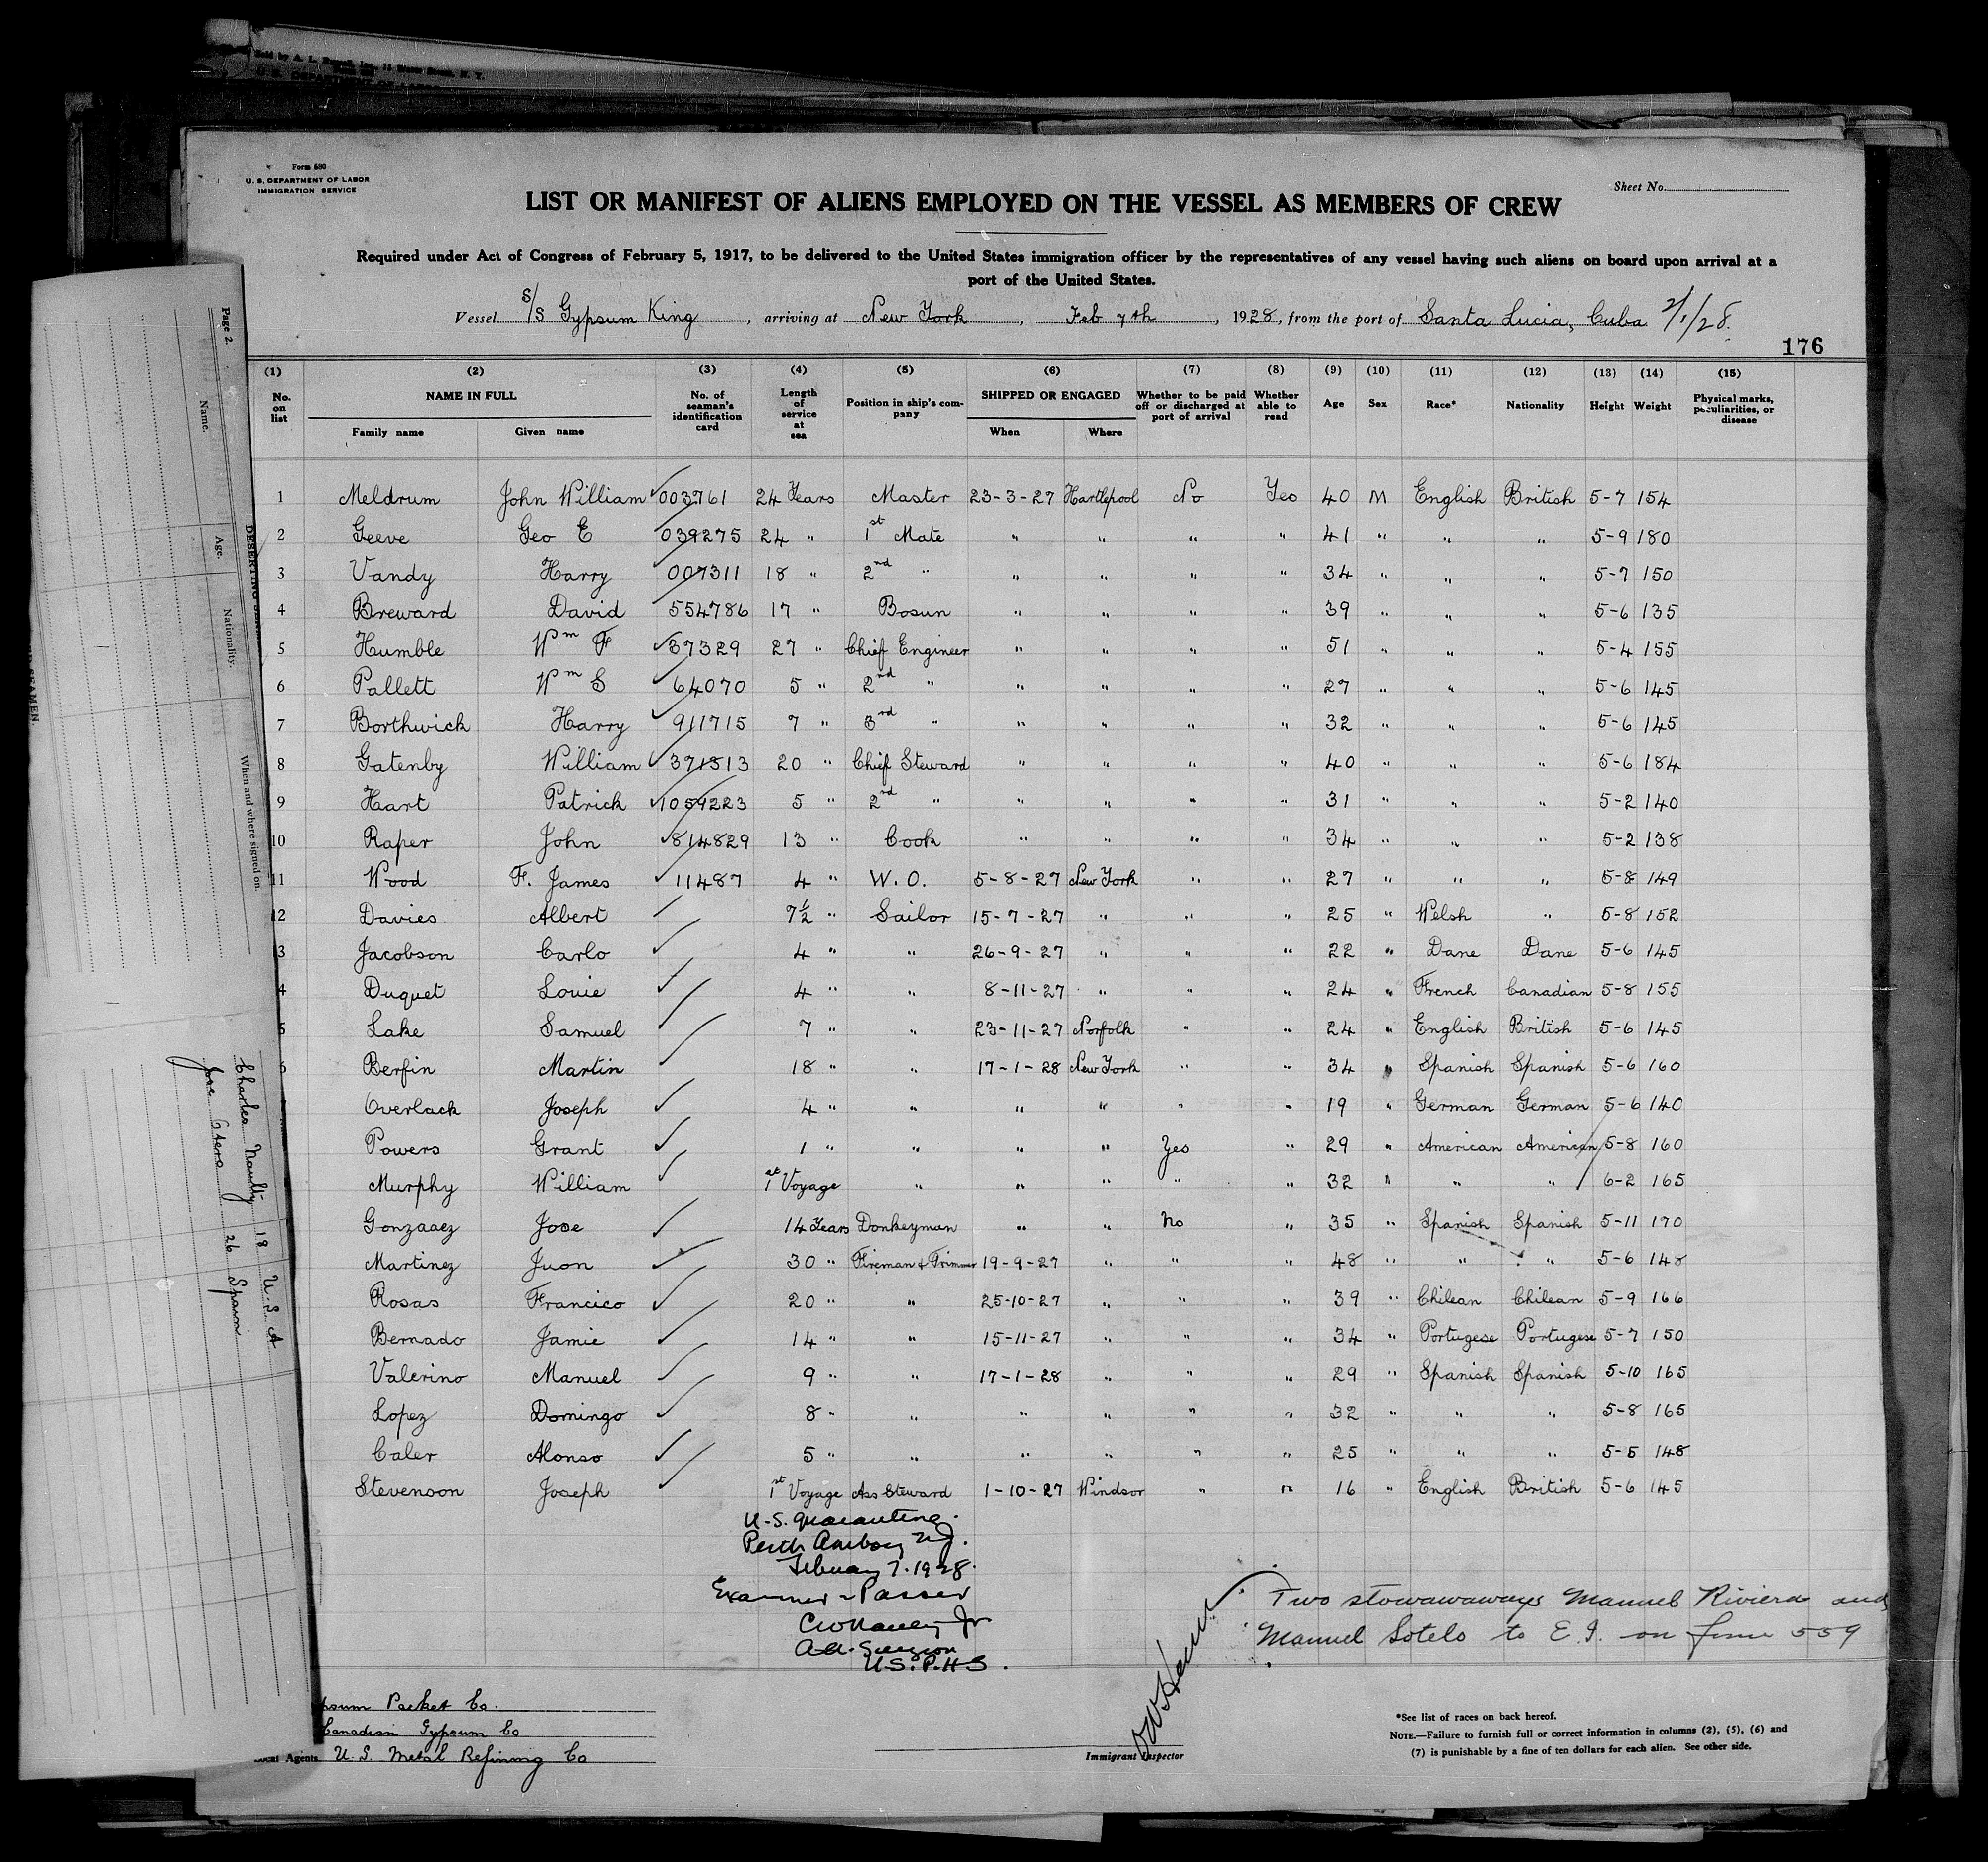 Sold by A. L. Russell, Inc., 12 Water Street, N. Y.
U. S. DEPARTMENT OF LABOR
Form 680
U. S. DEPARTMENT OF LABOR
IMMIGRATION SERVICE
Sheet No.
LIST OR MANIFEST OF ALIENS EMPLOYED ON THE VESSEL AS MEMBERS OF CREW
Required under Act of Congress of February 5, 1917, to be delivered to the United States immigration officer by the representatives of any vessel having such aliens on board upon arrival at a
port of the United States.
Vessel S/S Gypsum King, arriving at New York, Feb 7th, 1928, from the port of Santa Lucia, Cuba 2/1/28.
176
(1) (2) (3) (4) (5) (6) (7) (8) (9) (10) (11) (12) (13) (14) (15)
No. on list NAME IN FULL Family name Given name No. of seaman's identification card Length of service at sea Position in ship's company SHIPPED OR ENGAGED When Where Whether to be paid off or discharged at port of arrival Whether able to read Age Sex Race* Nationality Height Weight Physical marks, peculiarities, or disease
1 Meldrum John William 003761 24 Years Master 23-3-27 Hartlepool No Yes 40 M English British 5-7 154
2 Geeve Geo E 039275 24 " 1st Mate " " " " 41 " " " 5-9 180
3 Vandy Harry 007311 18 " 2nd " " " " " 34 " " " 5-7 150
4 Breward David 554786 17 " Bosun " " " " 39 " " " 5-6 135
5 Humble Wm F 37329 27 " Chief Engineer " " " " 51 " " " 5-4 155
6 Pallett Wm S 64070 5 " 2nd " " " " " 27 " " " 5-6 145
7 Borthwick Harry 911715 7 " 3rd " " " " " 32 " " " 5-6 145
8 Gatenby William 371513 20 " Chief Steward " " " " 40 " " " 5-6 184
9 Hart Patrick 1059223 5 " 2nd " " " " " 31 " " " 5-2 140
10 Raper John 814829 13 " Cook " " " " 34 " " " 5-2 138
11 Wood F. James 11487 4 " W. O. 5-8-27 New York " " 27 " " " 5-8 149
12 Davies Albert 7½ " Sailor 15-7-27 " " " 25 " Welsh " 5-8 152
3 Jacobson Carlo 4 " " 26-9-27 " " " 22 " Dane Dane 5-6 145
4 Duquet Louie 4 " " 8-11-27 " " " 24 " French Canadian 5-8 155
5 Lake Samuel 7 " " 23-11-27 Norfolk " " 24 " English British 5-6 145
6 Berfin Martin 18 " " 17-1-28 New York " " 34 " Spanish Spanish 5-6 160
Overlack Joseph 4 " " " " " " 19 " German German 5-6 140
Powers Grant 1 " " " " Yes " 29 " American American 5-8 160
Murphy William 1st Voyage " " " " " 32 " " " 6-2 165
Gonzaaez Jose 14 Years Donkeyman " " No " 35 " Spanish Spanish 5-11 170
Martinez Juon 30 " Fireman & Trimmer 19-9-27 " " " 48 " " " 5-6 148
Rosas Francico 20 " " 25-10-27 " " " 39 " Chilean Chilean 5-9 166
Bernado Jamie 14 " " 15-11-27 " " " 34 " Portugese Portugese 5-7 150
Valerino Manuel 9 " " 17-1-28 " " " 29 " Spanish Spanish 5-10 165
Lopez Domingo 8 " " " " " " 32 " " " 5-8 165
Caler Alonso 5 " " " " " " 25 " " " 5-5 148
Stevenson Joseph 1st Voyage Ass Steward 1-10-27 Windsor " " 16 " English British 5-6 145
U.S. Quarantine.
Perth Amboy NJ.
February 7. 1928.
Examined & Passed
Jr
U.S.P.H.S.
Two stowawaways Manuel Riviera and
Manuel Sotelo to E. I. on form 559
psum Packet Co.
Canadian Gypsum Co
Local Agents U. S. Metal Refining Co
Immigrant Inspector
*See list of races on back hereof.
NOTE.—Failure to furnish full or correct information in columns (2), (5), (6) and
(7) is punishable by a fine of ten dollars for each alien. See other side.
Page 2.
DESERTING
SEAMEN.
Name. Age. Nationality. When and where signed on.
Charles 18 U.S.A
Jose Otero 26 Spain